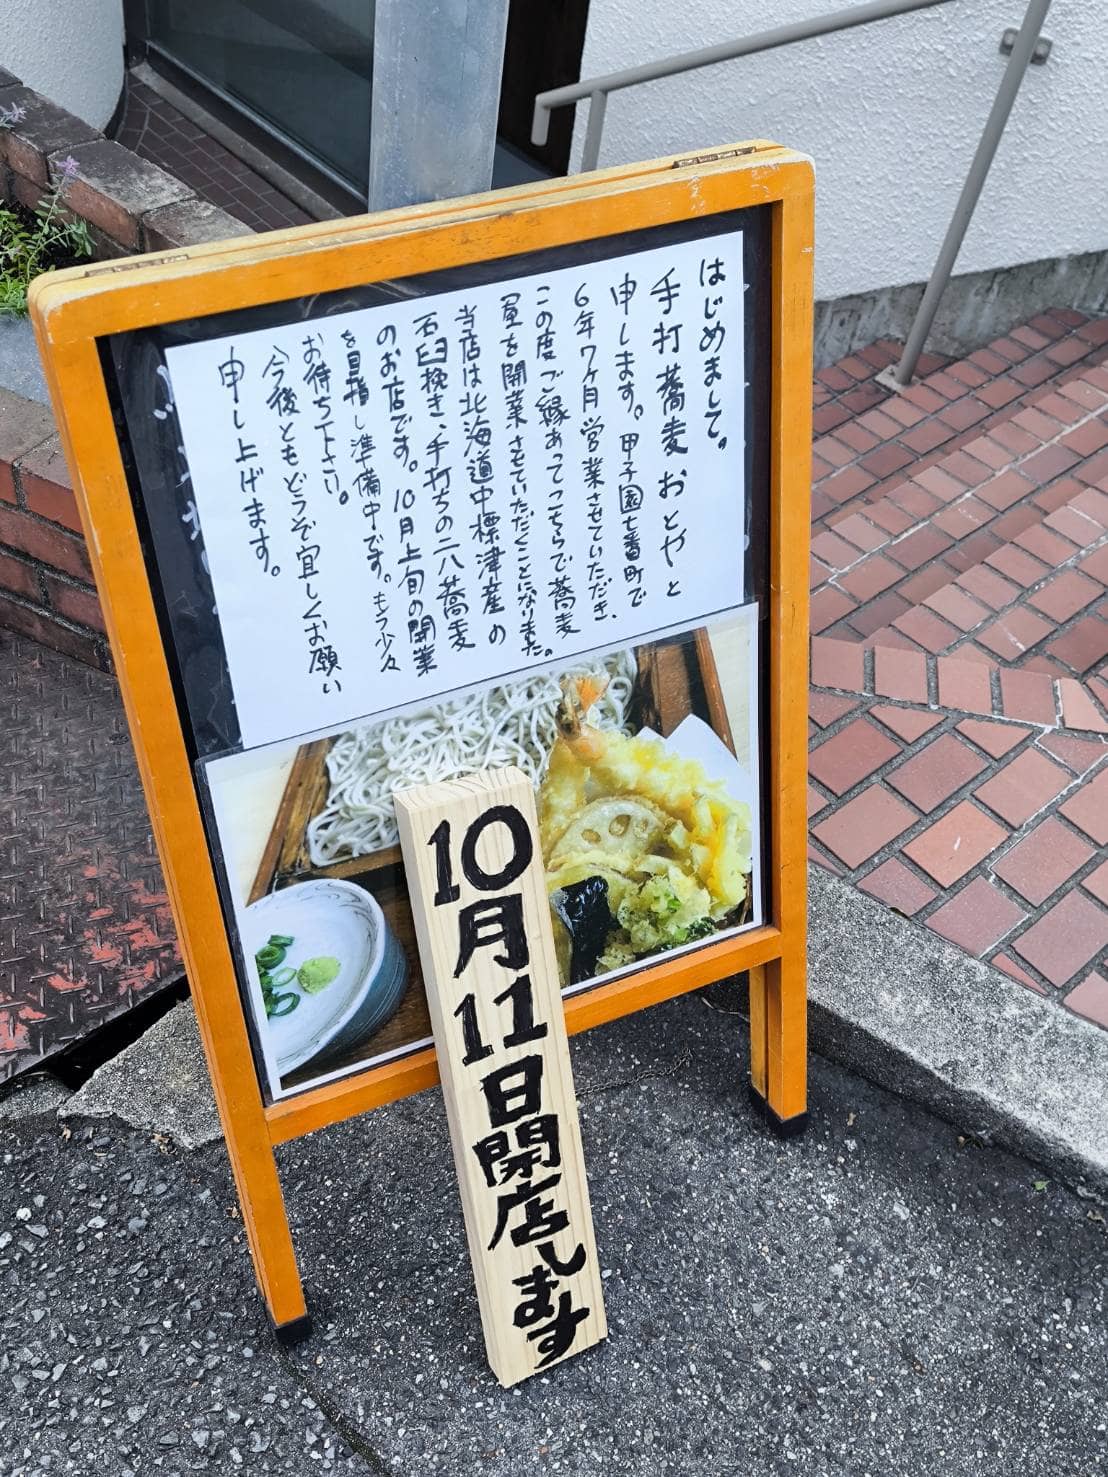 はじめまして。
手打蕎麦おとやと
申します。甲子園七番町で
6年7ヶ月営業させていただき、
この度ご縁あってこちらで蕎麦
屋を開業させていただくことになりました。
当店は北海道中標津産の
石臼挽き、手打ちの二八蕎麦
のお店です。10月上旬の開業
を目指し準備中です。もう少々
お待ち下さい。
今後ともどうぞ宜しくお願い
申し上げます。
10月11日開店します